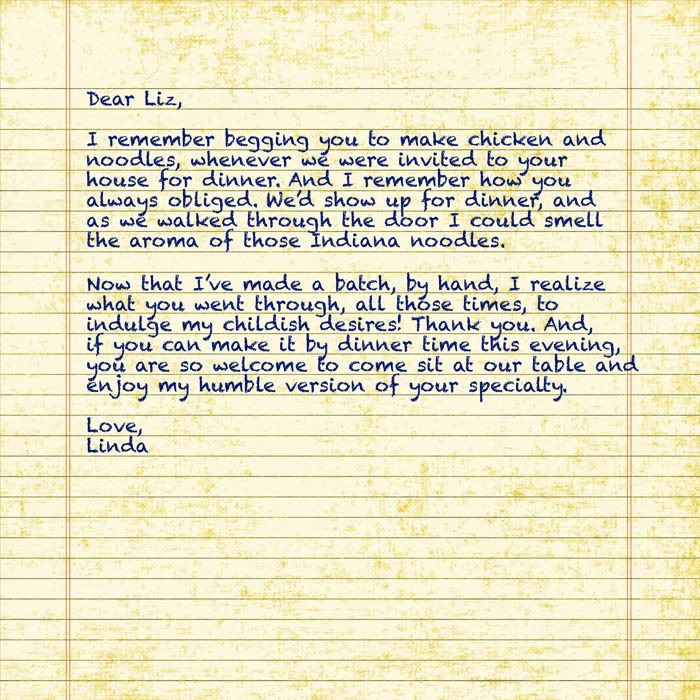 Dear Liz,
I remember begging you to make chicken and
noodles, whenever we were invited to your
house for dinner. And I remember how you
always obliged. We'd show up for dinner, and
as we walked through the door I could smell
the aroma of those Indiana noodles.
Now that I've made a batch, by hand, I realize
what you went through, all those times, to
indulge my childish desires! Thank you. And,
if you can make it by dinner time this evening,
you are so welcome to come sit at our table and
enjoy my humble version of your specialty.
Love,
Linda